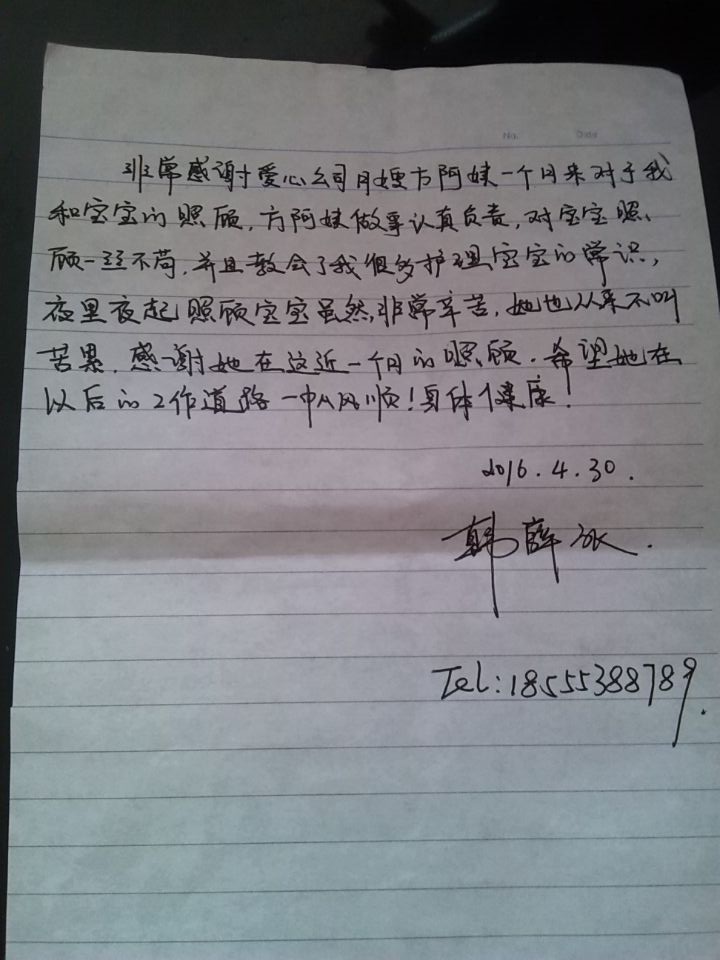 No. Date
非常感谢爱心公司月嫂方阿姨一个月来对于我
和宝宝的照顾,方阿姨做事认真负责,对宝宝照
顾一丝不苟,并且教会了我很多护理宝宝的常识,
夜里夜起照顾宝宝虽然,非常辛苦,她也从来不叫
苦累.感谢她在这近一个月的照顾.希望她在
以后的工作道路一帆风顺!身体健康!
2016.4.30.
韩薛冰.
Tel:18555388789.